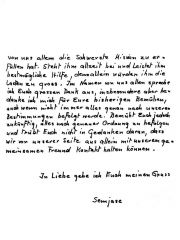 von uns allem die schwerste Mission zu er-
füllen hat. Steht ihm allzeit bei und Leistet ihm
bestmögliche Hilfe, denn allein würden ihm die
Lasten zu gross. Im Namen von uns allen spreche
ich Euch grossen Dank aus, insbesondere aber be-
danke ich mich für Eure bisherigen Bemühen,
auch wenn nicht immer alles genau nach unseren
Bestimmungen befolgt wurde. Bemüht Euch jedoch
zukünftig, alles nach genauer Ordnung zu befolgen
und trübt Euch nicht in Gedanken daran, dass
wir von unserer Seite aus allein mit unserem ge-
meinsamen Freund Kontakt halten können.
In Liebe gebe ich Euch meinen Gruss
Semjase